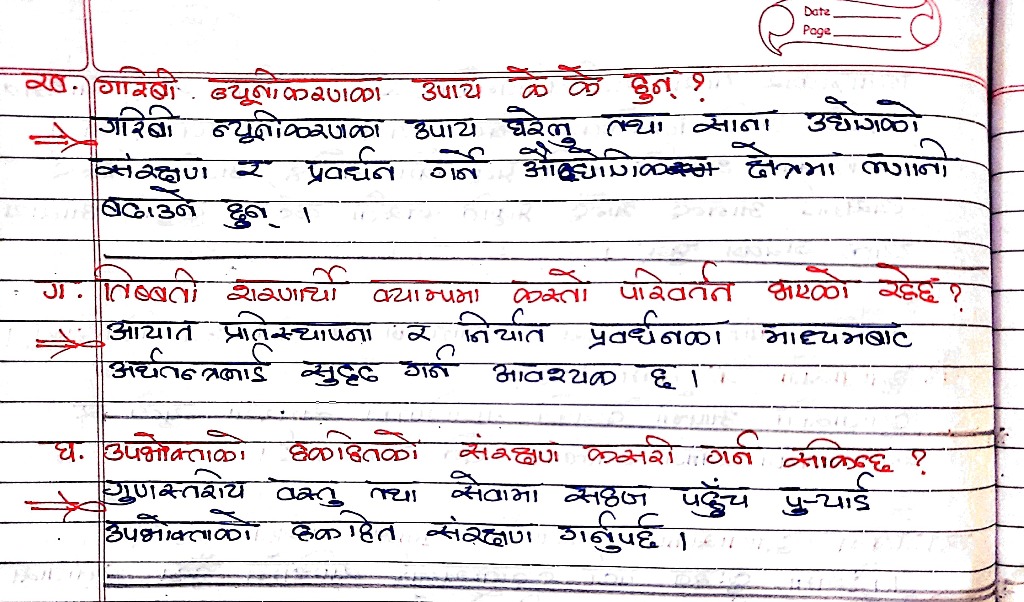 Date
Page
ख. गरिबी न्यूनीकरणका उपाय के के हुन् ?
गरिबी न्यूनीकरणका उपाय घरेलु तथा साना उद्योगको
संरक्षण र प्रवर्धन गर्ने औद्योगिक क्षेत्रमा लगानी
बढाउने हुन् ।
ग. तिब्बती शरणार्थी क्याम्पमा कस्तो परिवर्तन भएको रहेछ ?
आयात प्रतिस्थापना र निर्यात प्रवर्धनका माध्यमबाट
अर्थतन्त्रलाई सुदृढ गर्न आवश्यक छ ।
घ. उपभोक्ताको हकहितको संरक्षण कसरी गर्न सकिन्छ ?
गुणस्तरीय वस्तु तथा सेवामा सहज पहुँच पुर्‍याई
उपभोक्ताको हकहित संरक्षण गर्नुपर्छ ।